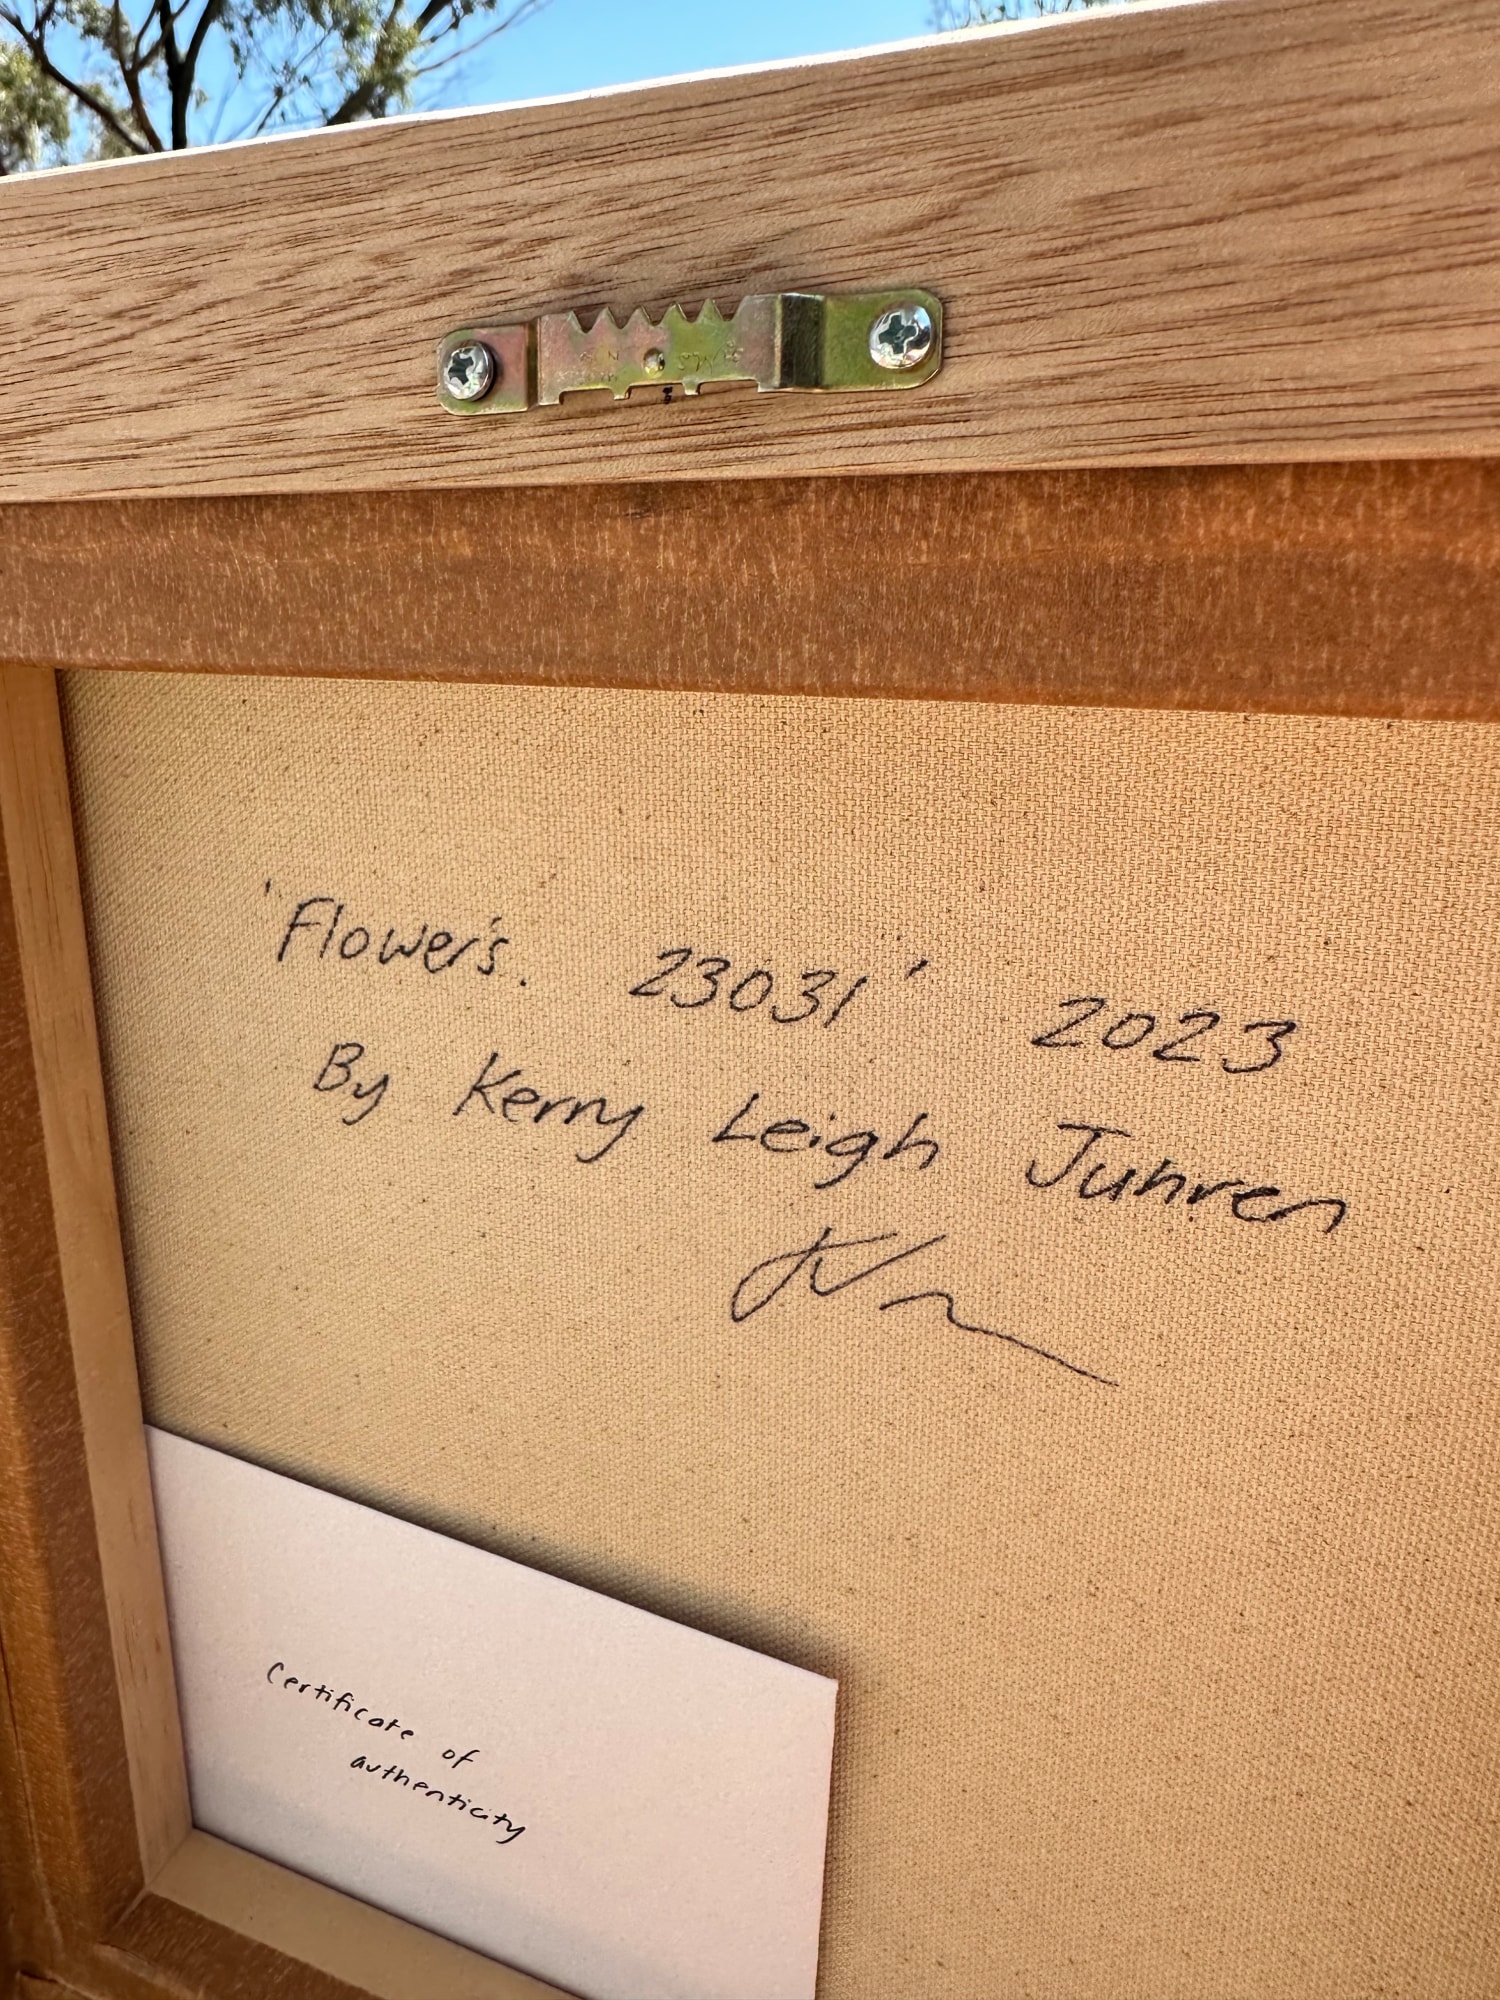 'Flower's. 23031' 2023
By Kerry Leigh Juhren
Certificate of
authenticity